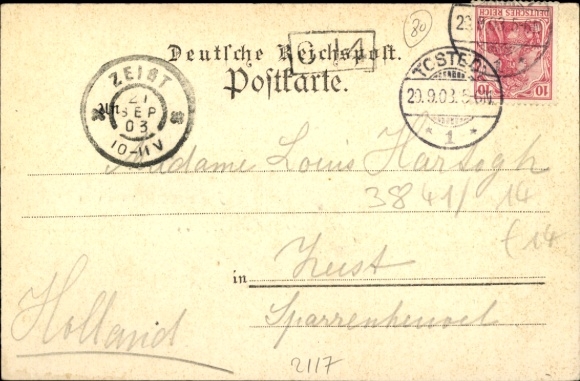 80
DEUTSCHES REICH
10 10
G 14
Deutsche Reichspost.
Postkarte.
TOSTEDT
29.9.03. 5-6N.
* 1 *
ZEIST
21
SEP
03
10-11V
An
Madame Louis Hartogh
3841/14
£14
in Zeist
Sparrenheuvel
Holland
2117